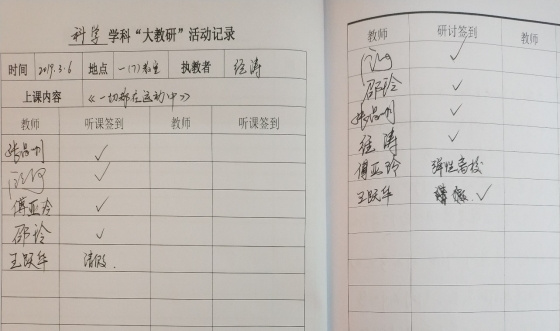 科学 学科“大教研”活动记录
时间 2019.3.6 地点 一(7)教室 执教者 经涛
上课内容 《一切都在运动中》
教师 听课签到 教师 听课签到
✓
✓
傅亚玲 ✓
邵玲 ✓
王跃华 请假.
教师 研讨签到 教师
✓
邵玲 ✓
✓
经涛 ✓
傅亚玲 弹性离校
王跃华 ✓